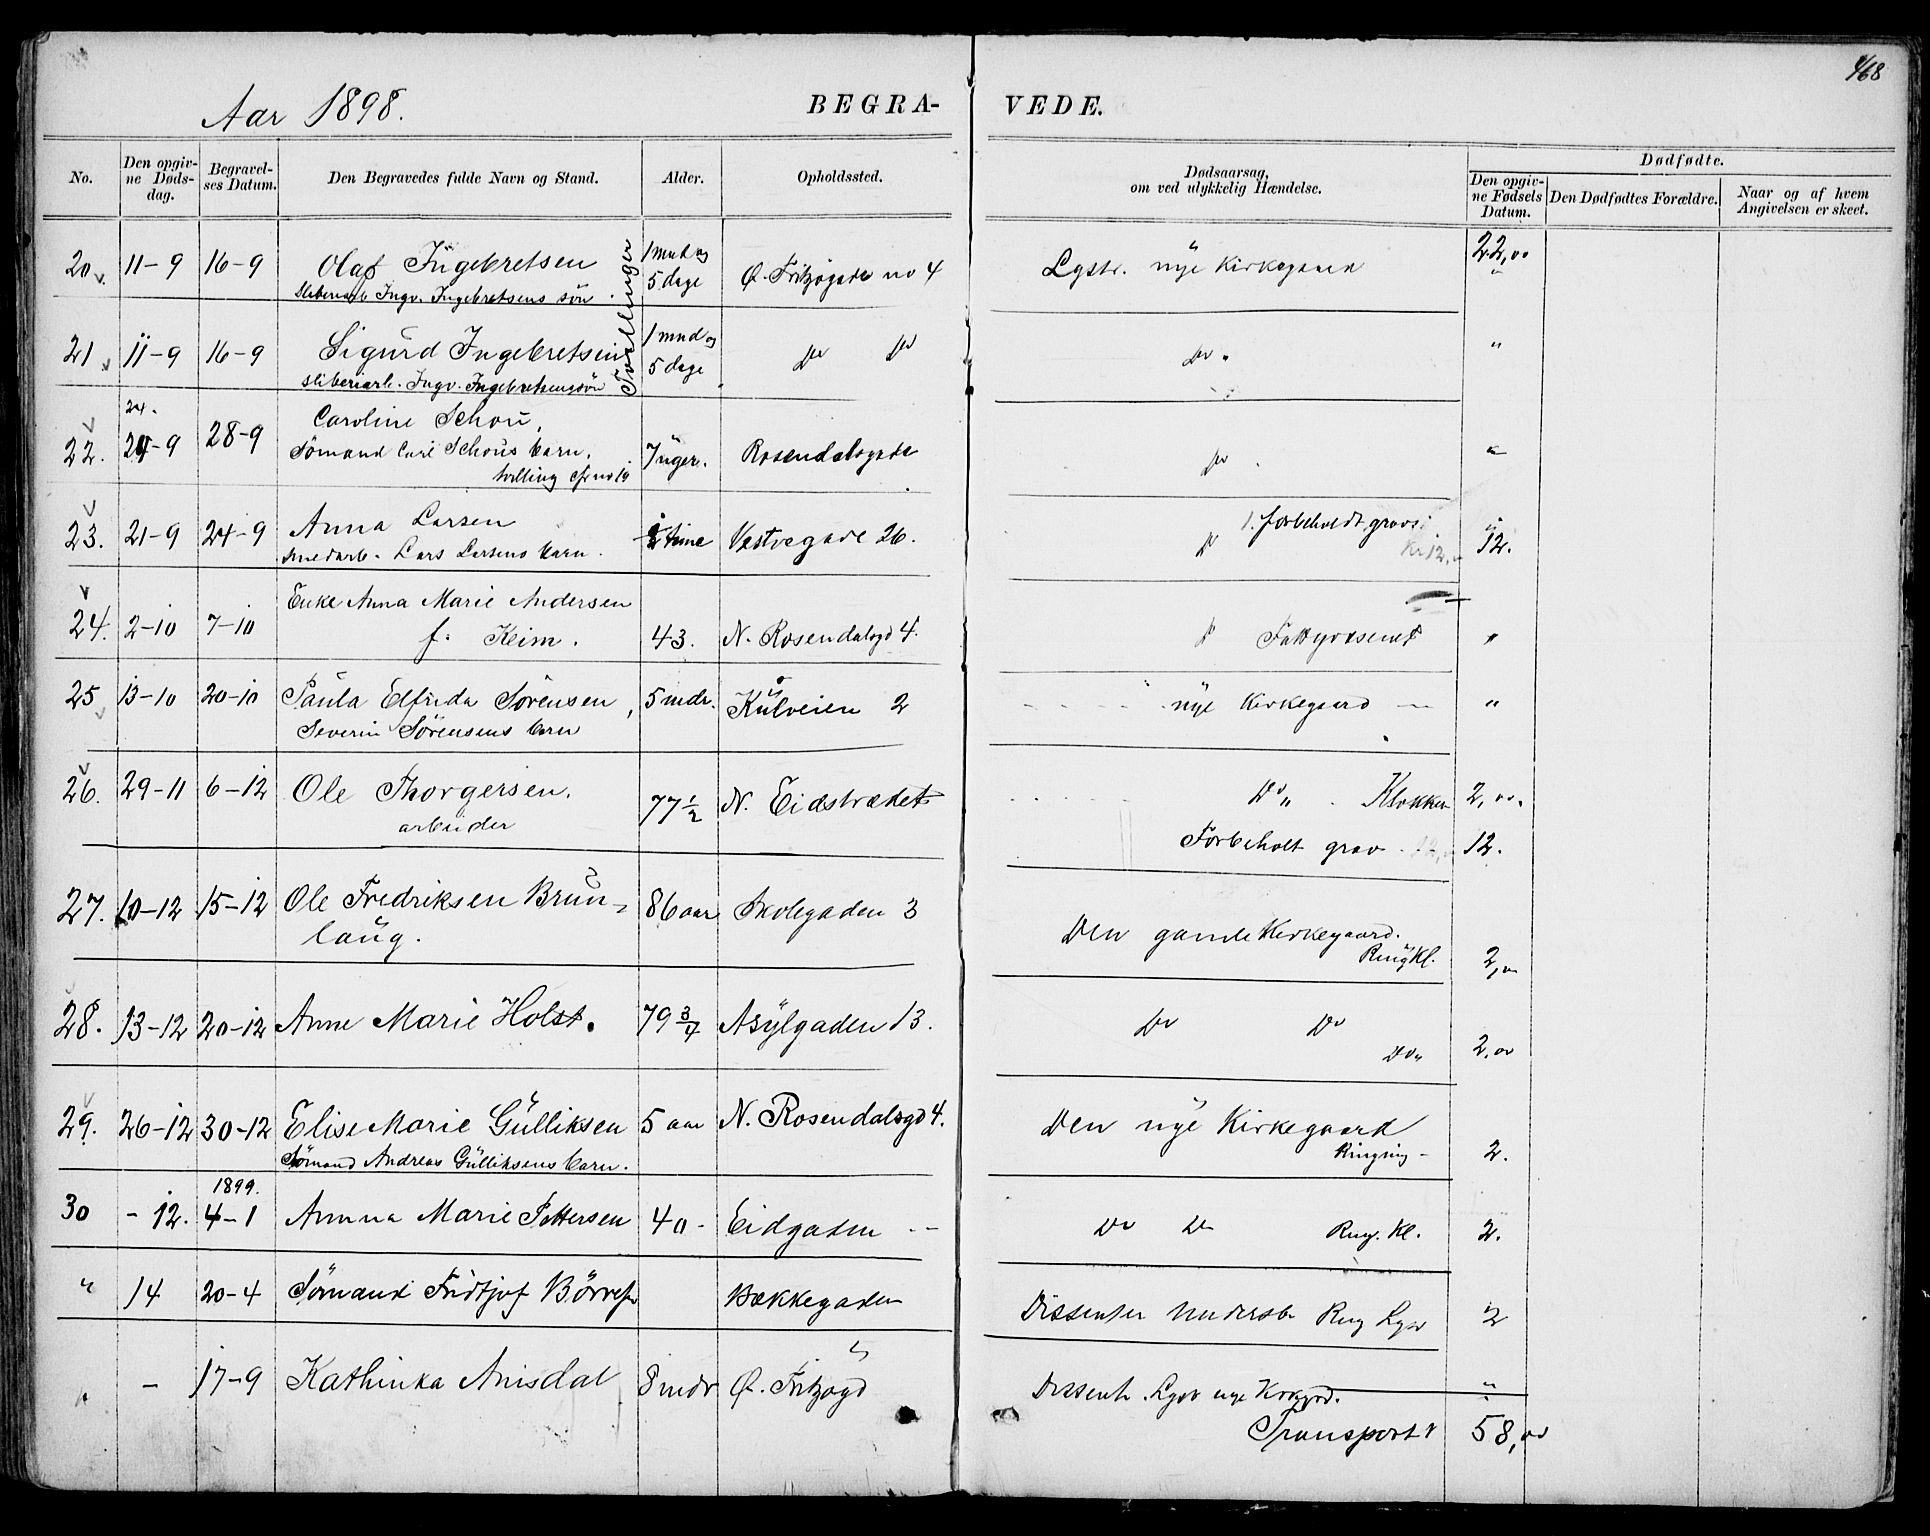 468
Aar 1898.
BEGRA- VEDE.
No.
Den opgiv-
ne Døds-
dag.
Begravel-
ses Datum.
Den Begravedes fulde Navn og Stand.
Alder.
Opholdssted.
Dødsaarsag,
om ved ulykkelig Hændelse.
Dødfødte.
Den opgiv-
ne Fødsels
Datum.
Den Dødfødtes Forældre.
Naar og af hvem
Angivelsen er skeet.
20 11-9 16-9 Olaf Ingebretsen 1 mnd og Ø. Fritzøgade no 4 Lgstr. nye Kirkegaard 22,00
Sliberiarb Ingv. Ingebretsens søn. 5 dage "
Tvillinger
21 11-9 16-9 Sigurd Ingebretsen 1 mnd og Do Do Do. "
Sliberiarb. Ingv. Ingebretsens søn 5 dage
24.
22. 24-9 28-9 Caroline Schou, 7 uger. Rosendalsgade Do "
Sømand Carl Schous barn.
tvilling cfr no 19
23. 21-9 24-9 Anna Larsen ½ time Vestregade 26. D 1. forbeholdt gravs. 12.
Smedarb. Lars Larsens barn. Kr 12,-
24. 2-10 7-10 Enke Anna Marie Andersen
f. Keim. 43. N. Rosendalsgd 4. D Fattigvæsenet "
25 13-10 20-10 Paula Elfrida Sørensen, 5 mdr. Kulveien 2 nye Kirkegaard "
Severin Sørensens barn
26. 29-11 6-12 Ole Thorgersen. 77½ N. Eidstrædet Do " Klokken 2,00.
arbeider
Forbeholt grav 12.
27. 10-12 15-12 Ole Fredriksen Brun- 86 aar Skolegaden 3 Den gamle Kirkegaard.
laug. Ring Kl. 2,00
28. 13-12 20-12 Anne Marie Holst. 79 3/4 Asylgaden 13. Do Do
Do " 2,00
29. 26-12 30-12 Elise Marie Gulliksen 5 aar N. Rosendalsgd 4. Den nye Kirkegaard
Sømand Andreas Gulliksens barn. Ringning - 2.
1899.
30 - 12. 4-1 Annna Marie Pettersen 40 - Eidgaden -- Do Do Ring. Kl. 2.
" 14 20-4 Sømand Fridtjof Bækkegaden Dissenter Ring 2
- 17-9 Kathinka Anisdal 8 mdr Ø. Fritzøgd Dissent. nye "
Transport 58,00